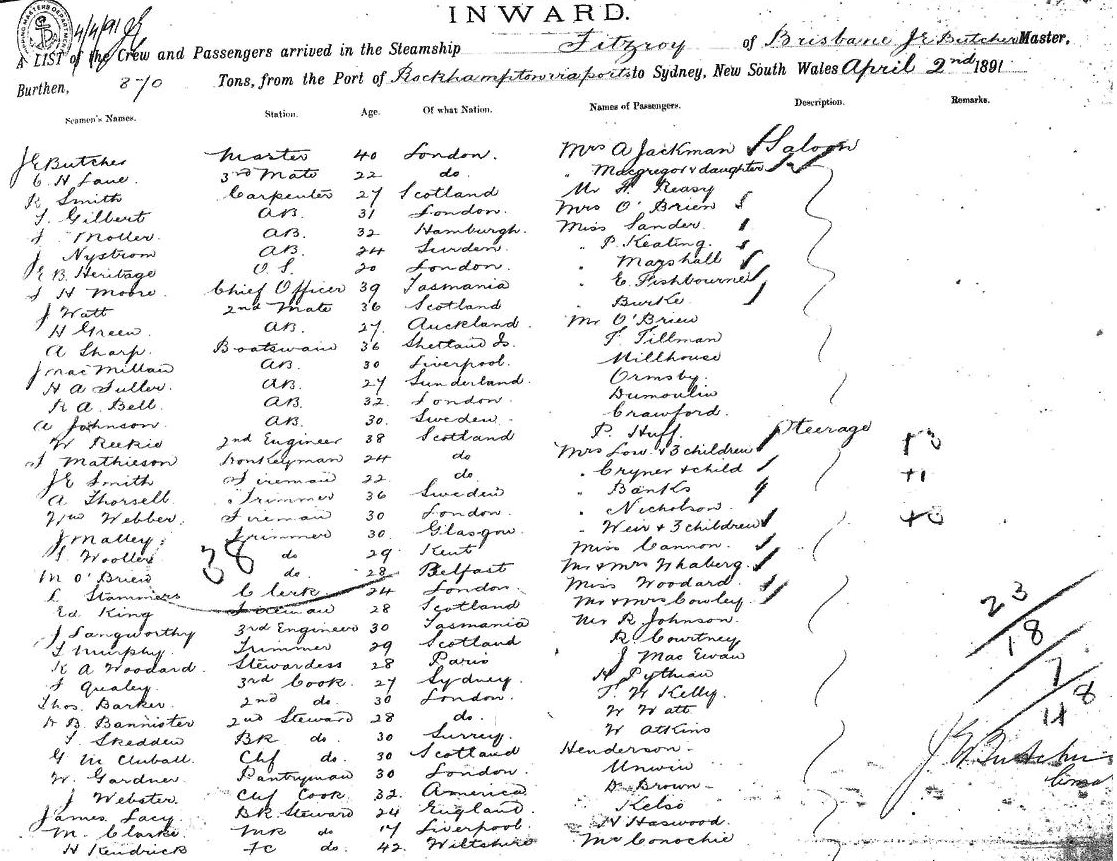 INWARD.
4/4/91
A LIST of the Crew and Passengers arrived in the Steamship Fitzroy of Brisbane J E Butcher Master,
Burthen, 870 Tons, from the Port of Rockhampton via ports to Sydney, New South Wales April 2nd 1891
Seamen's Names. Station. Age. Of what Nation. Names of Passengers. Description. Remarks.
J E Butcher Master 40 London. Mrs A Jackman Saloon
C. H Lane. 3rd Mate 22 do. " Macgregor & daughter
R Smith Carpenter 27 Scotland Mr F. Reasy
T. Gilbert AB. 31 London. Mrs O'Brien
Moller. AB. 32 Hamburgh. Miss Sander.
J Nystrom AB. 24 Sweden " P. Keating.
J E B. Heritage O.S. 20 London. " Marshall
H Moore. Chief Officer 39 Tasmania " E Fishbourne
J Watt 2nd Mate 36 Scotland " Burke
H Green. AB. 27. Auckland. Mr O'Brien
A Sharp. Boatswain 36 Shetland Is. T. Tillman
J MacMillan AB. 30 Liverpool. Millhouse
H A Fuller. AB. 27 Sunderland. Ormsby.
R A. Bell. AB. 32. London. Dumoulin
A Johnson. AB. 30. Sweden. Crawford.
W Reekie 2nd Engineer 38 Scotland P. Huff. Steerage
Mathieson Donkeyman 24 do Mrs Low. & 3 children +3
J E Smith Fireman 22 do. " Cryner & child +1
A Thorsell. Trimmer 36 Sweden " Banks
Wm Webber. Fireman 30 London. " Nicholson.
J Malley. Trimmer 30 Glasgow. " Weir & 3 children +3
Wooller do 29 Kent Miss Cannon.
M O'Brien do. 28 Belfast Mr & Mrs Whaberg.
38
L Stammers Clerk 24 London. Miss Woodard
Ed. King Fireman 28 Scotland Mr & Mrs Cowley.
J Langworthy 3rd Engineer 30 Tasmania Mr R Johnson.
T Murphy. Trimmer 29 Scotland R. Courtney
K A Woodard. Stewardess 28 Paris J MacEwan
Qualey. 3rd Cook. 27 Sydney. H Pythian
Thos. Barker. 2nd do. 30 London. T. W Kelly.
B. Bannister 2nd Steward 28 do. W Watt
Skedden BK do. 30 Surrey. W Atkins
G. M Cluball. Chf do. 30 Scotland Henderson.
W. Gardner. Pantryman 30 London. Unwin
J Webster. Chf Cook. 32. America D. Brown
James Lacy BK. Steward 24 England. Kelso
M. Clarke. MR do 17 Liverpool. H Haswood.
H Kendrick FC do. 42. Wiltshire Mr Conochie
23
18
7
48